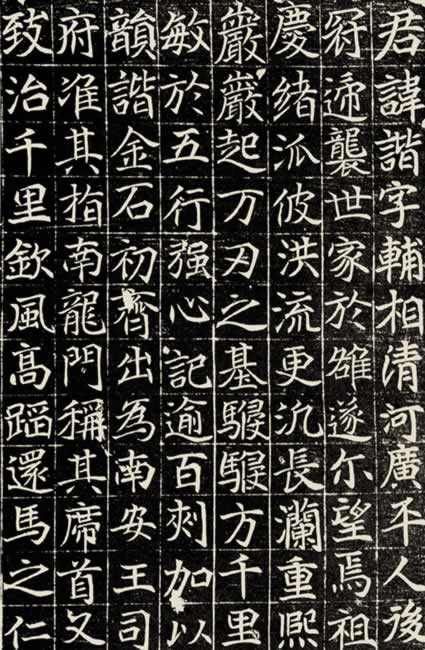 君諱諧字輔相清河廣平人後
冠遞襲世家於雒遂尒望焉祖
慶緒泒彼洪流更沉長瀾重熈
巖巖起万刃之基駸駸方千里
敏於五行强心記逾百刺加以
韻諧金石初齊出為南安王司
府准其指南龍門稱其席首又
致治千里欽風高蹈還馬之仁